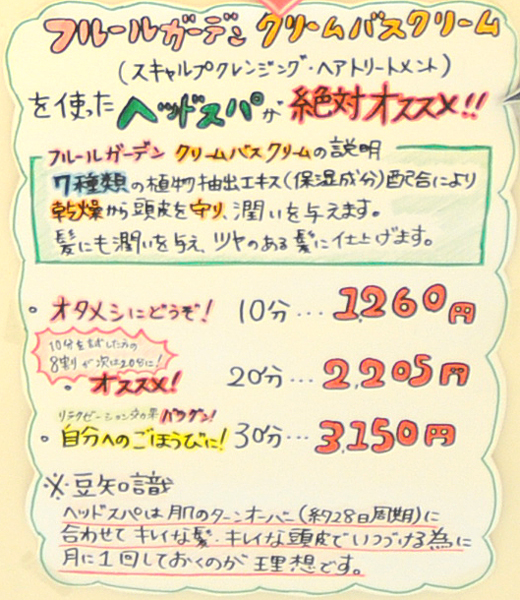 フルールガーデン クリームバスクリーム
(スキャルプクレンジング・ヘアトリートメント)
を使った ヘッドスパが 絶対オススメ!!
フルールガーデン クリームバスクリームの説明
7種類の植物抽出エキス(保湿成分)配合により
乾燥から頭皮を守り、潤いを与えます。
髪にも潤いを与え、ツヤのある髪に仕上げます。
・オタメシにどうぞ! 10分… 1,260円
10分を試した方の
8割が次は20分に!
・オススメ! 20分… 2,205円
リラクゼーション効果バツグン!
・自分へのごほうびに! 30分… 3,150円
※豆知識
ヘッドスパは肌のターンオーバー(約28日周期)に
合わせてキレイな髪・キレイな頭皮でいつづける為に
月に1回しておくのが理想です。